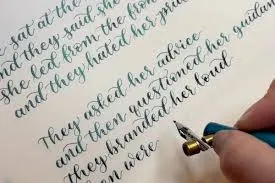 sat at the
and they said she
she led from the fron
and they hated her
They asked her advice
and then questioned her guidan
they branded her loud
on were